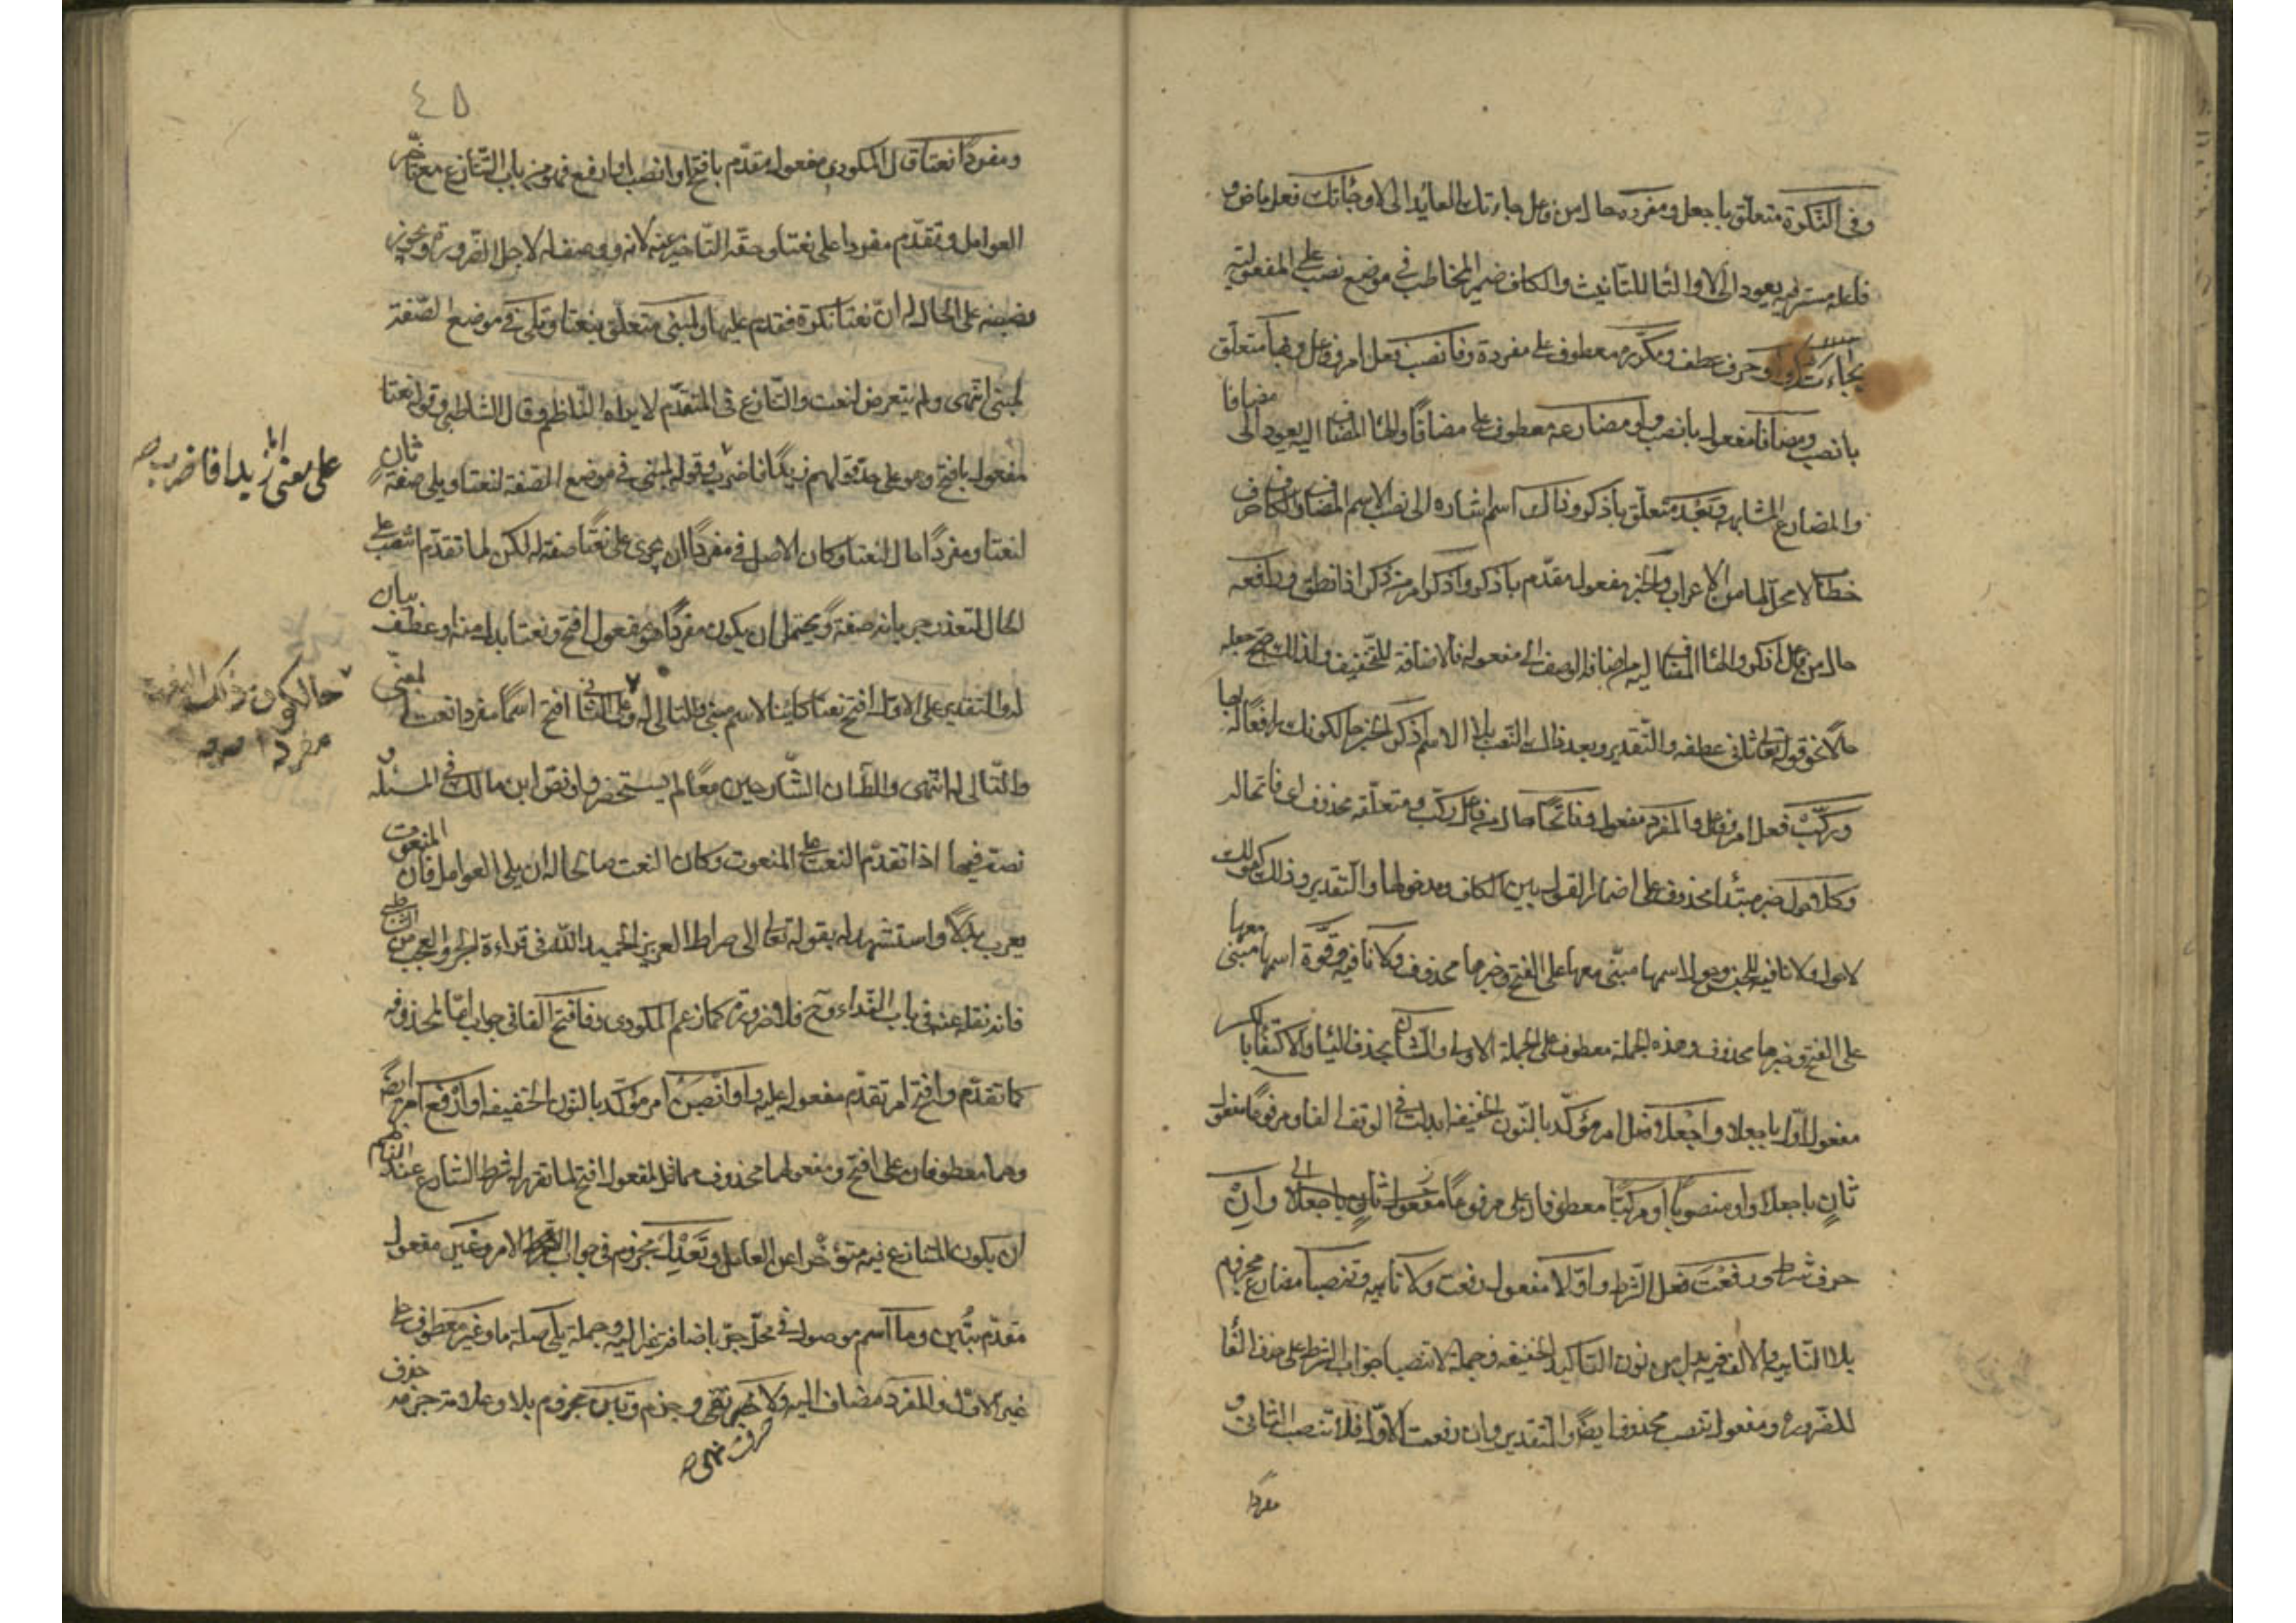 وفي النكرة متعلق باجعل ومفردة حال من فاعل جاءتك العائد الى لا وجاءتك فعل ماض و
فاعله مستتر فيه يعود الى لا والتا للتانيث والكاف ضمير المخاطب في موضع نصب على المفعولية
بجاءت او حرف عطف ومكررة معطوف على مفردة وفانصب فعل امر وفاعل وبها متعلق
بانصب ومضافا مفعول بانصب او مضارعه معطوف على مضافا والها المضاف اليه يعود الى مضافا
والمضارع المشابه وبعد متعلق باذكر وذاك اسم اشارة الى نصب الاسم المضاف والكاف حرف
خطاب لا محل لها من الاعراب والخبر مفعول مقدم باذكر واذكر امر من ذكر اذا نطق ورافعه
حال من فاعل اذكر والها المضاف اليه من اضافة الوصف الى مفعوله فالاضافة للتخفيف ولذلك صح جعله
حالا نحو قوله تعالى ثاني عطفه والتقدير وبعد ذاك النصب بلا الاسم اذكر الخبر حال كونك رافعا له بها
وركب فعل امر وفاعل والمفرد مفعول وفاتحا حال من فاعل ركب ومتعلقه محذوف اي فاتحا له
وكلا حول خبر مبتدا محذوف على اضمار القول بين الكاف ومدخولها والتقدير وذلك كقولك
لا حول ولا نافية للجنس وحول اسمها مبني معها على الفتح وخبرها محذوف ولا نافية وقوة اسمها مبني معها
على الفتح وخبرها محذوف وهذه الجملة معطوف على الجملة الاولى والثان بحذف اليا والاكتفا بالكسر
مفعول اول باجعلا واجعلا فعل امر مؤكد بالنون الخفيفة ابدلت في الوقف الفا ومرفوعا مفعول
ثان باجعلا او منصوبا او مركبا معطوفان على مرفوعا مفعول ثان باجعلا وان
حرف شرط ورفعت فعل الشرط واولا مفعول رفعت ولا ناهية وتنصبا مضارع مجزوم
بلا الناهية والالف فيه بدل من نون التاكيد الخفيفة وجملة لا تنصبا جواب الشرط على حذف الفا
للضرورة ومفعول تنصب محذوف ايضا والتقدير وان رفعت الاول فلا تنصب الثاني و
مفردا
٤٥
ومفردا نعتا قال المكودي مفعول مقدم بافتح او انصب او ارفع فهو من باب التنازع مع تاخر
العوامل وتقدم مفردا على نعتا وحقه التاخير عنه لانه وصف له لاجل الضرورة ويجوز
نصبه على الحال لان نعتا نكرة فقدم عليها ولمبني متعلق بنعتا ويلي في موضع الصفة
لمبني انتهى ولم يتعرض لنعت والتنازع في المتقدم لا يراه الناظم وقال الشاطبي وقوله نعتا
مفعول بافتح وهو على حد قولهم زيدا فاضرب وقوله لمبني في موضع الصفة لنعتا ويلي صفة ثان
على معنى اما زيدا فاضرب صح
لنعتا ومفردا حال لنعتا وكان الاصل في مفردا ان يجري على نعتا صفة له لكن لما تقدم انتصب على
الحال لتعذر جريانه صفة ويحتمل ان يكون مفردا هو مفعول افتح ونعتا بدل منه او عطف بيان
له والتقدير على الاول افتح نعتا كائنا لاسم مبني والتالي له وعلى الثاني افتح اسما مفردا نعت لمبني
حال كون ذلك النعت
مفردا
والتالي له انتهى واظن ان الشارحين معا لم يستحضروا نص ابن مالك في المسئلة و
نصه فيها اذا تقدم النعت على المنعوت وكان النعت صالحا لان يلي العوامل فان المنعوت
يعرب بدلا واستشهد له بقوله تعالى الى صراط العزيز الحميد الله في قراءة الجر والعجب من الشاطبي
فانه نقله عنه في باب النداء وح فلا ضرورة كما زعم المكودي وفافتح الفا في جواب اما المحذوفة
كما تقدم وافتح امر تقدم مفعوله عليه واو انصبن امر مؤكد بالنون الخفيفة او ارفع امر ايضا
وهما معطوفان على افتح ومفعولهما محذوف مماثل لمفعول افتح لما تقرر ان شرط التنازع عند الناظم
ان يكون المتنازع فيه متؤخرا عن العامل وتعدل مجزوم في جواب الامر وغير مفعول
مقدم بتبن وما اسم موصول في محل جر باضافة غير اليه وجملة يلي صلة ما وغير معطوف على
غير الاول والمفرد مضاف اليه ولا حرف نهي وجزم وتبن مجزوم بلا وعلامة جزمه حذف
حرف نهي صح